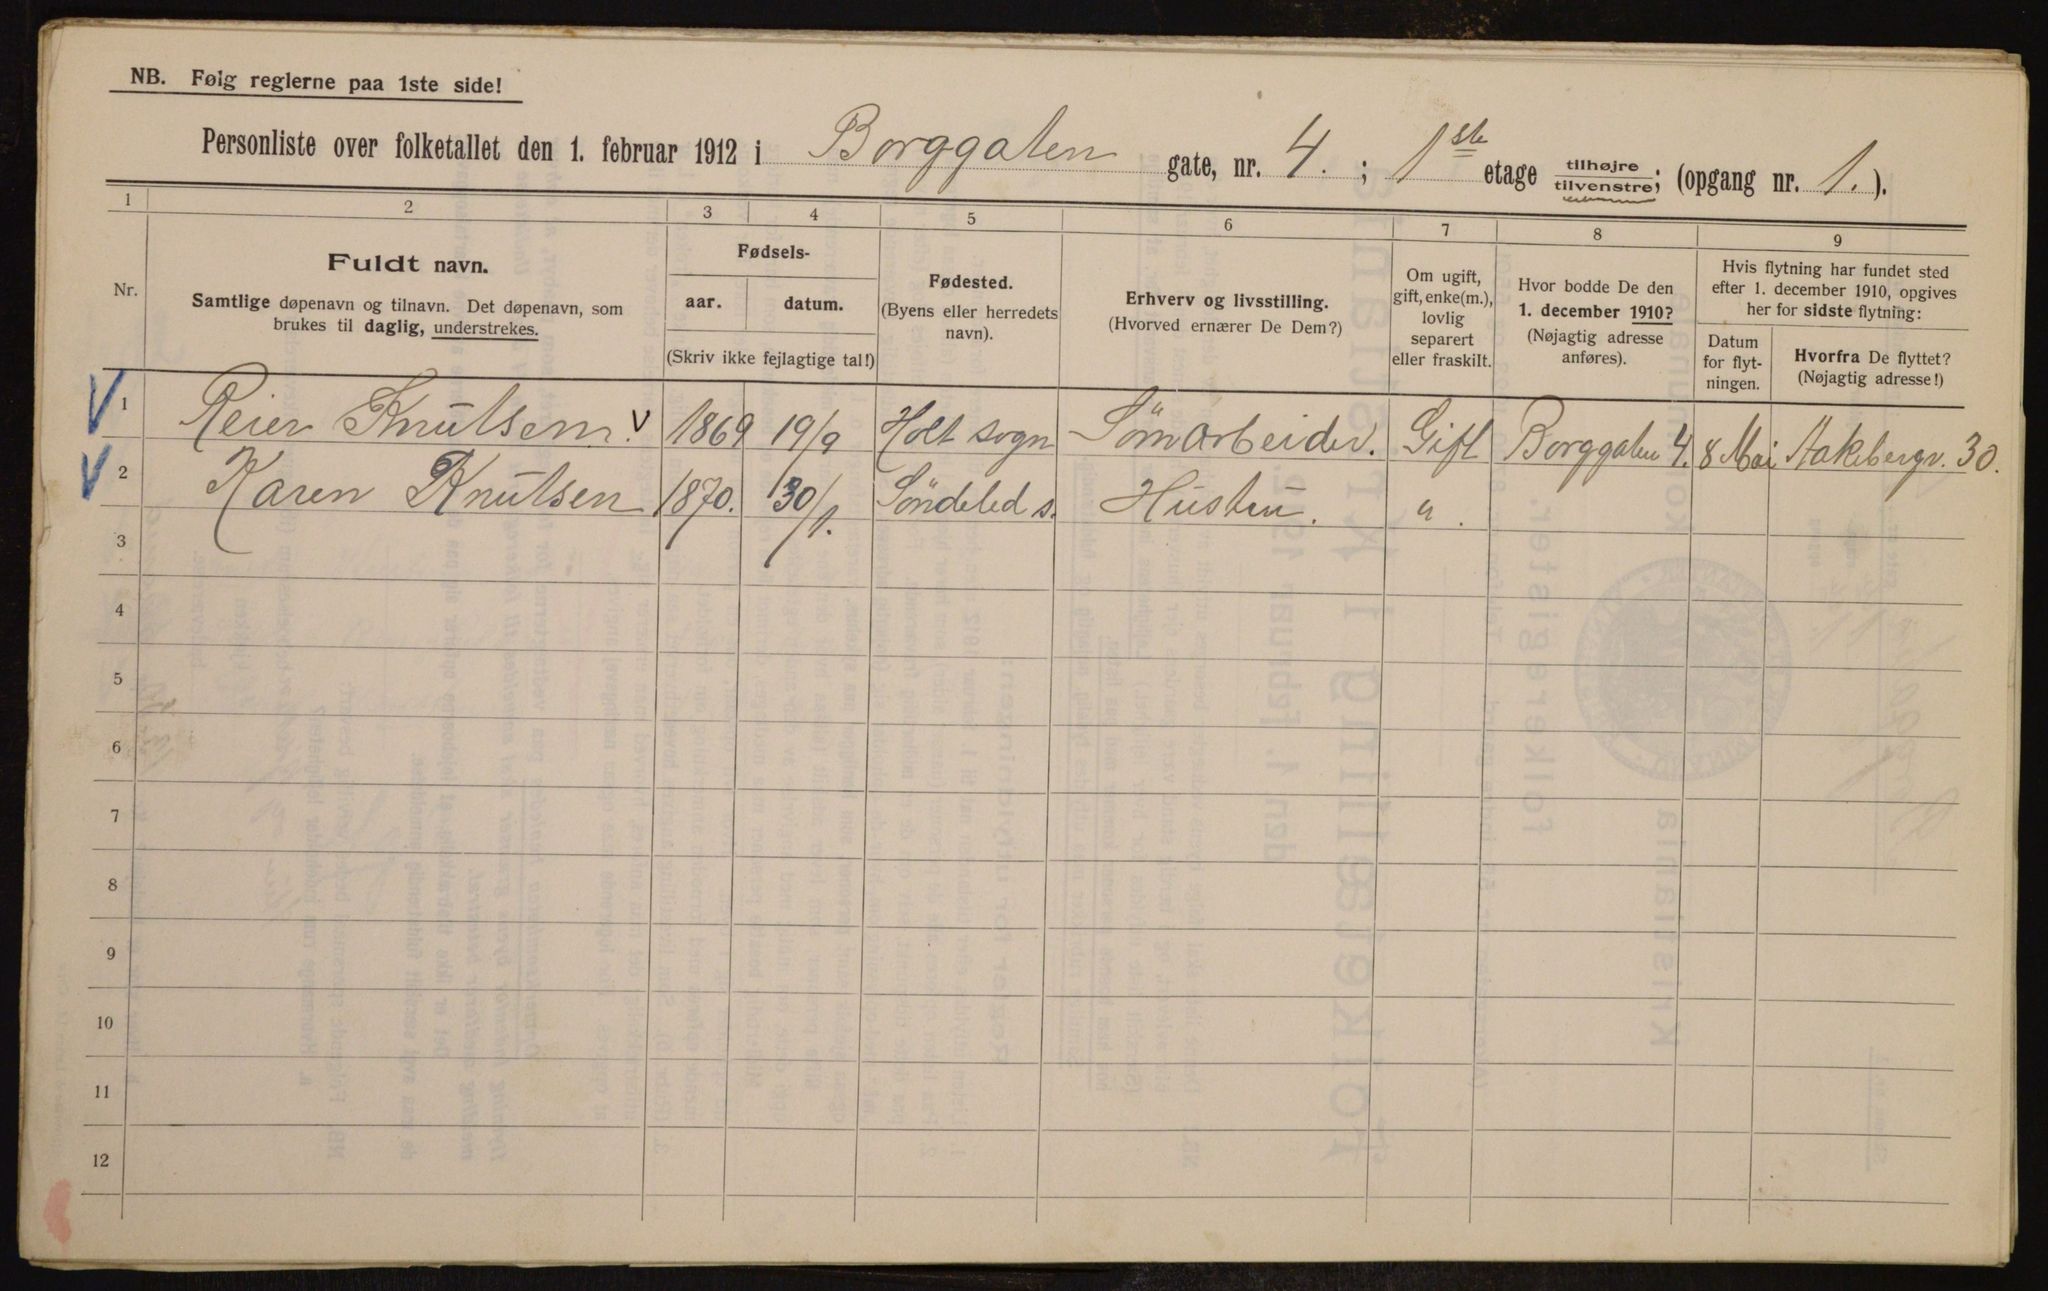 NB. Følg reglerne paa 1ste side!
Personliste over folketallet den 1. februar 1912 i Borggaten gate, nr. 4. ; 1ste etage tilhøjre/tilvenstre; (opgang nr. 1.).
1 2 3 4 5 6 7 8 9
Nr.
Fuldt navn.
Samtlige døpenavn og tilnavn. Det døpenavn, som
brukes til daglig, understrekes.
Fødsels-
aar. datum.
(Skriv ikke fejlagtige tal!)
Fødested.
(Byens eller herredets
navn).
Erhverv og livsstilling.
(Hvorved ernærer De Dem?)
Om ugift,
gift, enke(m.),
lovlig
separert
eller fraskilt.
Hvor bodde De den
1. december 1910?
(Nøjagtig adresse
anføres).
Hvis flytning har fundet sted
efter 1. december 1910, opgives
her for sidste flytning:
Datum
for flyt-
ningen.
Hvorfra De flyttet?
(Nøjagtig adresse!)
1 Reier Knutsen. v 1869 19/9 Holt sogn Sömarbeider. Gift Borggaten 4. 8 Mai Aakebergv. 30.
2 Karen Knutsen 1870. 30/1. Söndeled s. Hustru. " .
3
4
5
6
7
8
9
10
11
12